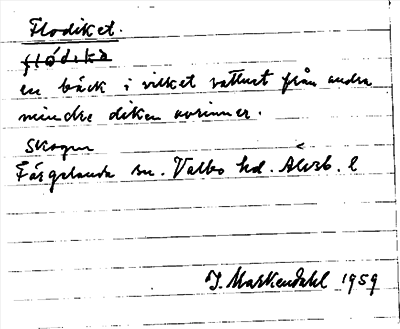 Flodiket.
flödika
en bäck i vilket vattnet från andra
mindre diken avrinner.
Skogen
Färgelanda sn. Valbo hd. Älvsb. l
J. Markendahl 1959